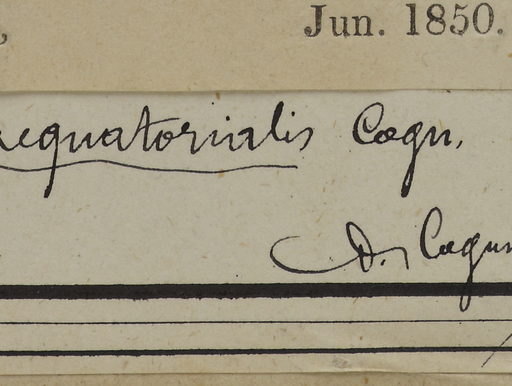 Jun. 1850.
aequatorialis Cogn.
A. Cogn